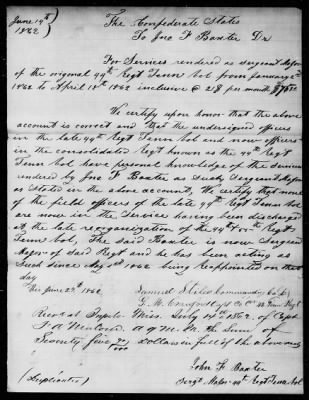 June 14th
1862
The Confederate States
To Jno F Baxter Dr
For Services rendered as Sergeant Major
of the original 44th Regt Tenn Vol from January
1862 to April 18th 1862 inclusive @ 21 per month $75
We certify upon honor that the above
account is correct and that the undersigned officers
in the late 44th Regt Tenn Vol and now officers
in the consolidated Regt known as the 44th Regt
Tenn Vol have personal knowledge of the services
rendered by Jno F Baxter as such Sergeant Major
as stated in the above account, We certify that none
of the field officers of the late 44th Regt Tenn Vol
are now in the Service having been discharged
at the late reorganization of the 44th & 55th Regt
Tenn Vol, The said Baxter is now Sergeant
Major of said Regt and he has been acting as
such since 1862 being reappointed on that
day
This June 23rd 1862
Samuel Stiles Commanding Co
G. M. Crawford Capt Co 44 Tenn Regt
Recd at Tupelo Miss. July 14th 1862, of Capt
F A A Q M. the Sum of
Seventy five /100 dollars in full of the above
John F Baxter
(Duplicates)
Sergt Major 44th Regt Tenn Vol